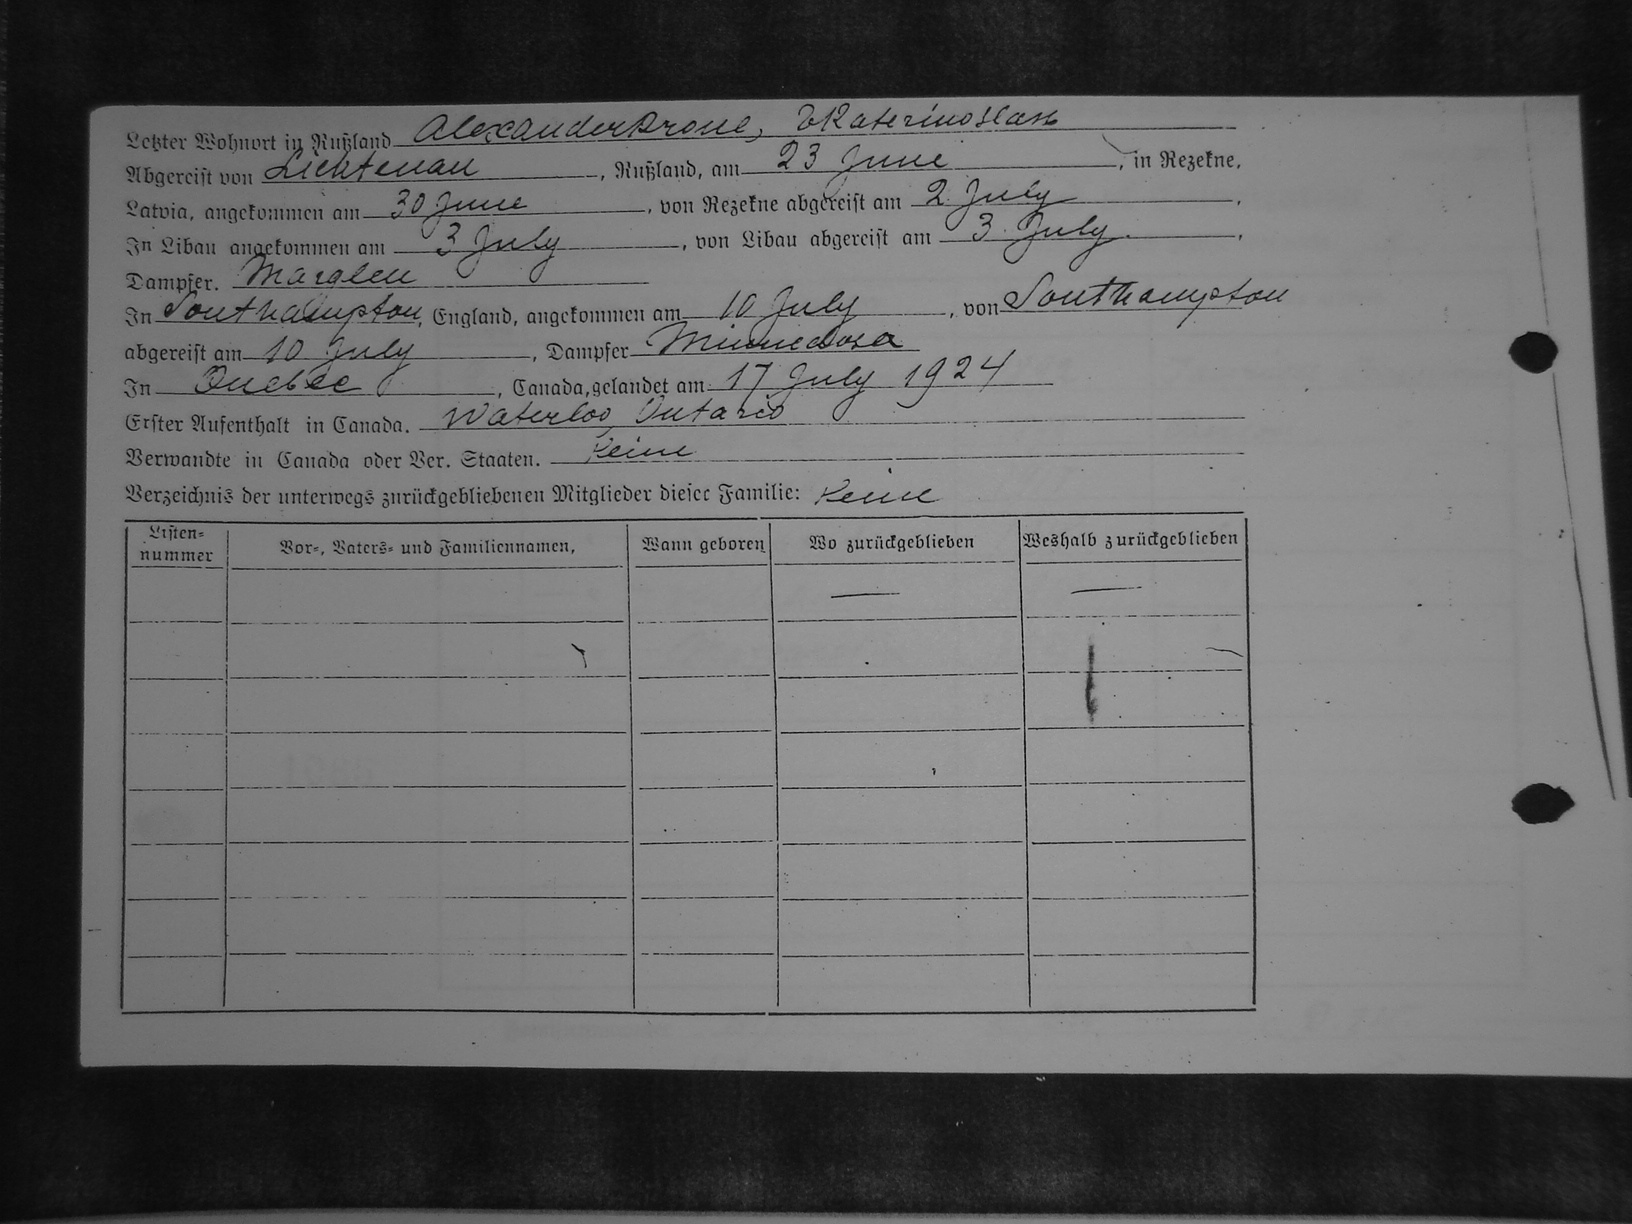 Letzter Wohnort in Rußland Alexanderkrone, Ekaterinoslaw
Abgereist von Lichtenau, Rußland, am 23 June, in Rezekne,
Latvia, angekommen am 30 June, von Rezekne abgereist am 2 July,
In Libau angekommen am 3 July, von Libau abgereist am 3 July,
Dampfer. Marglen
In Southampton, England, angekommen am 10 July, von Southampton
abgereist am 10 July, Dampfer Minnedosa
In Quebec, Canada, gelandet am 17 July 1924
Erster Aufenthalt in Canada. Waterloo, Ontario
Verwandte in Canada oder Ver. Staaten. Keine
Verzeichnis der unterwegs zurückgebliebenen Mitglieder dieser Familie: Keine
Listen-
nummer Vor-, Vaters- und Familiennamen, Wann geboren Wo zurückgeblieben Weshalb zurückgeblieben
— —